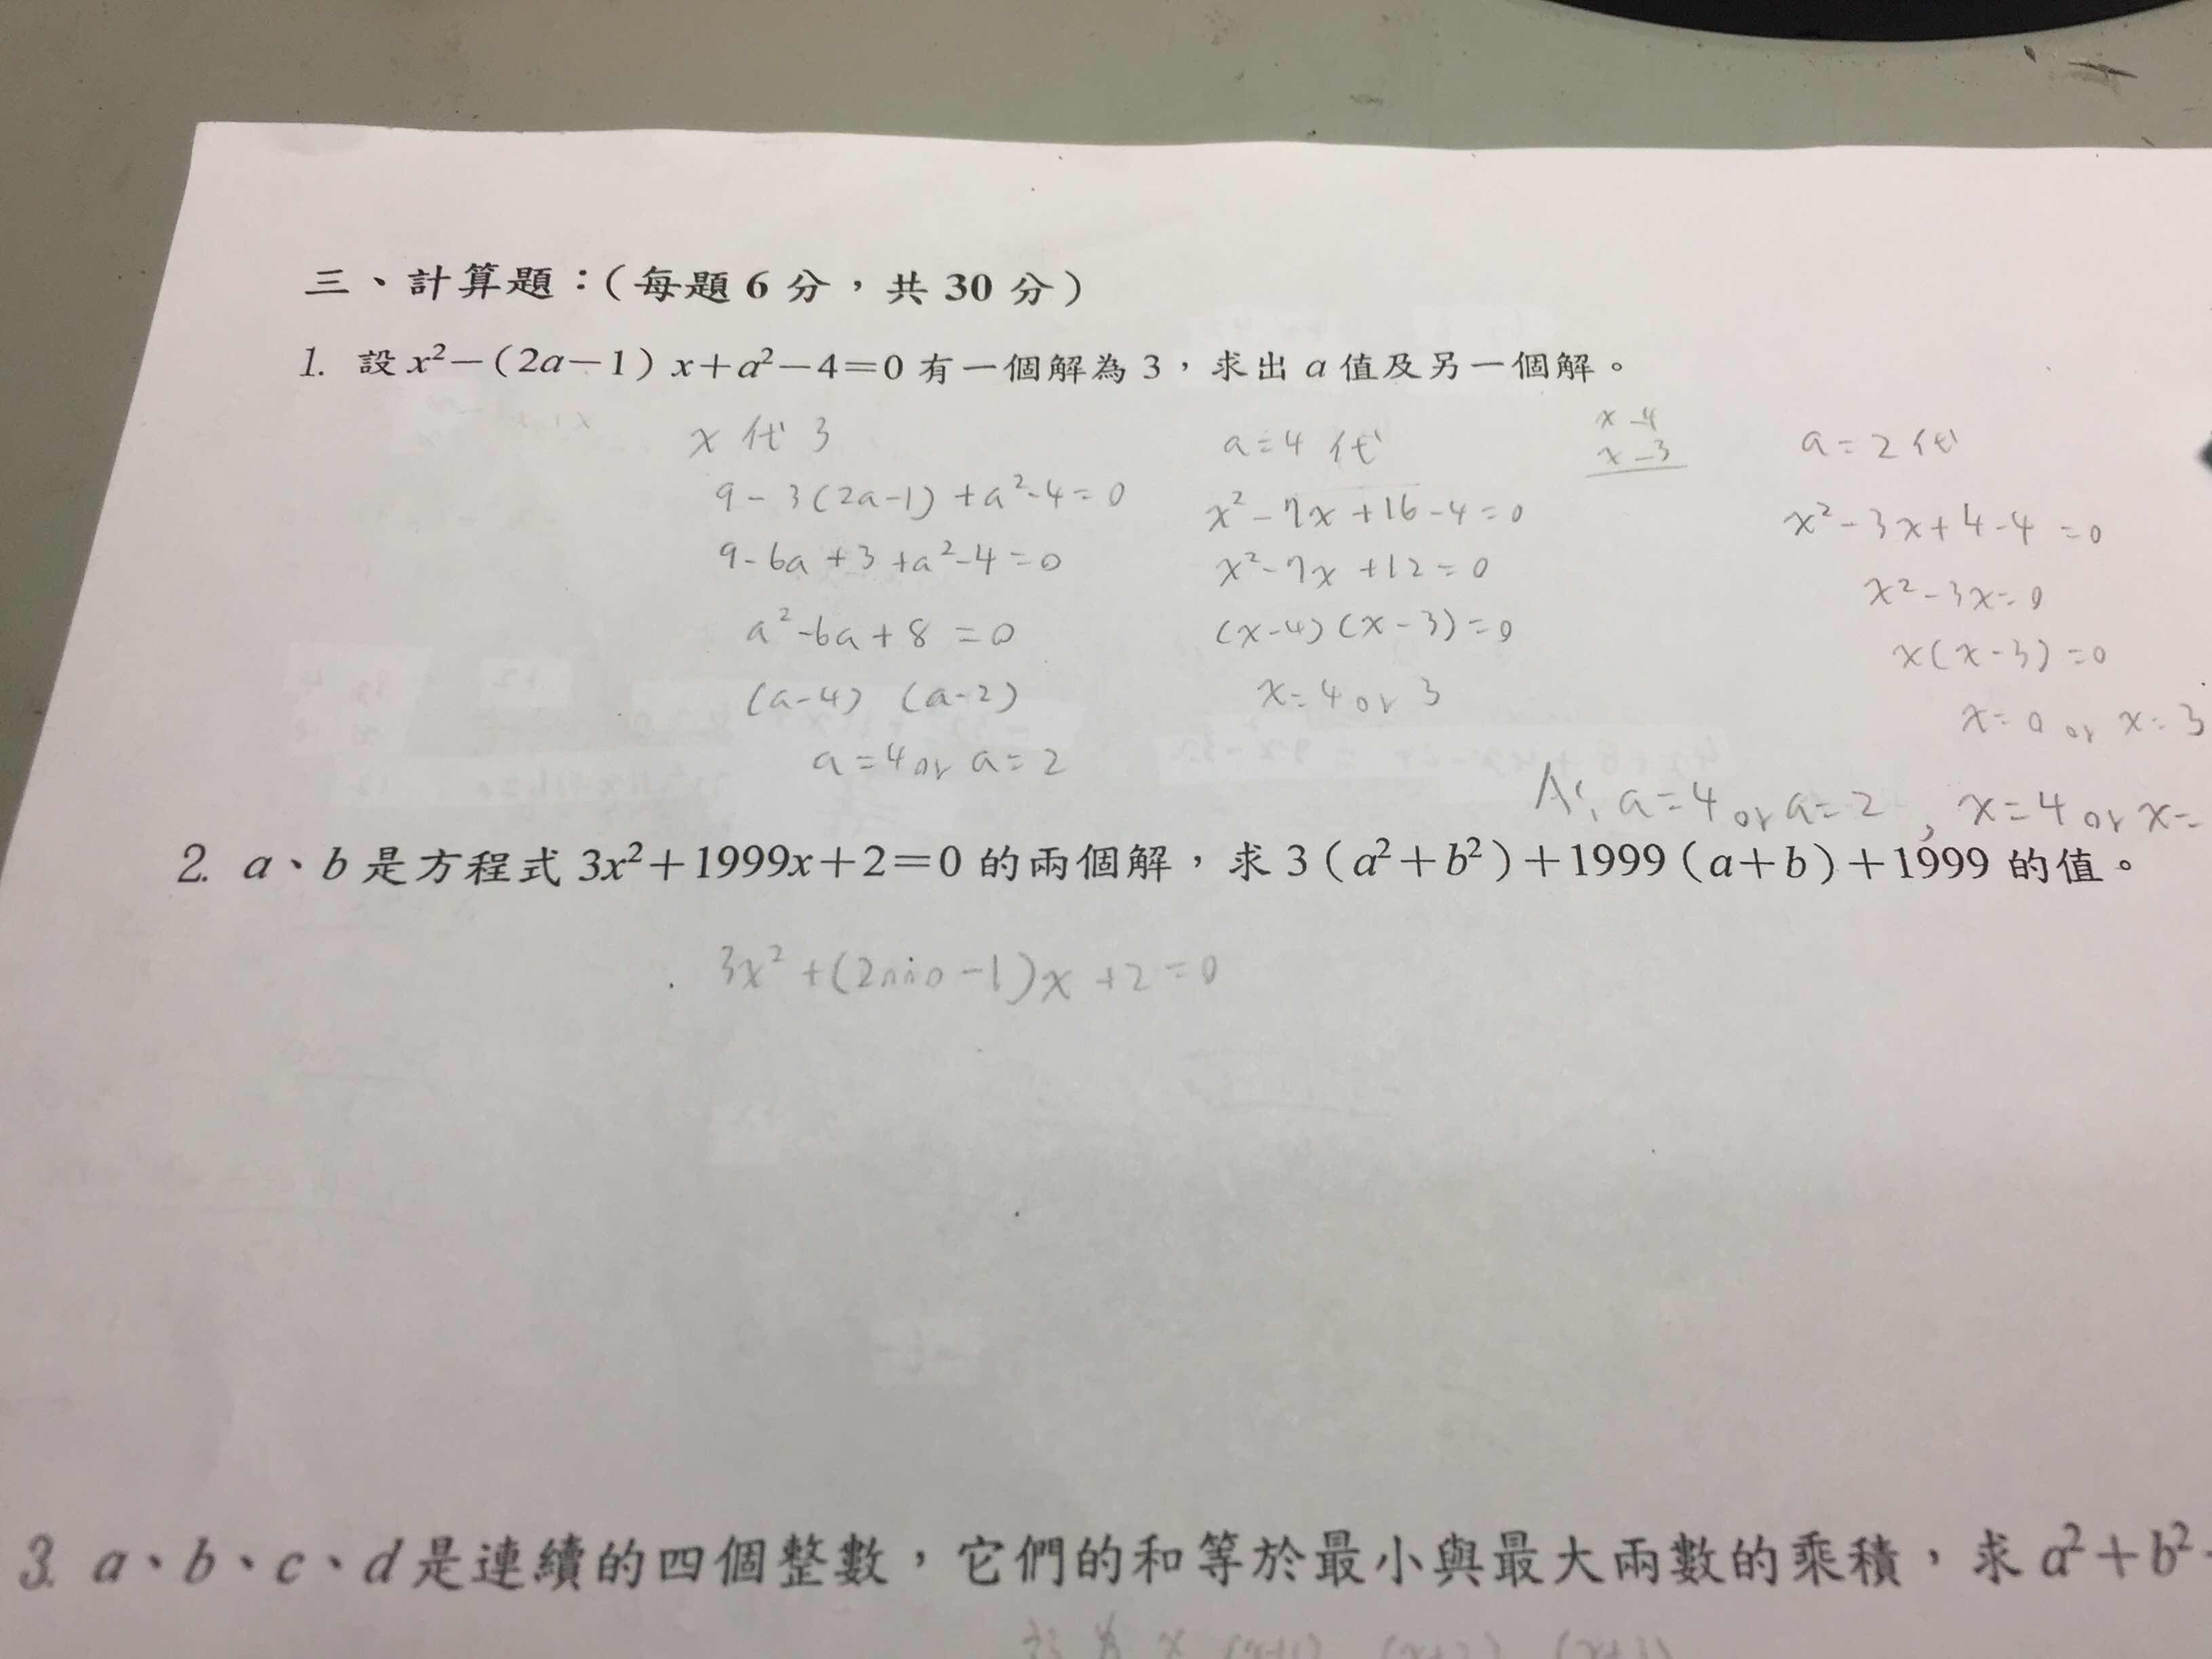 三、計算題：（每題 6 分，共 30 分）
1. 設 x²－（2a－1）x＋a²－4＝0 有一個解為 3，求出 a 值及另一個解。
x 代 3
9 - 3(2a-1) + a²-4 = 0
9 - 6a + 3 + a²-4 = 0
a² - 6a + 8 = 0
(a-4) (a-2)
a = 4 or a = 2
a = 4 代
x² - 7x + 16 - 4 = 0
x² - 7x + 12 = 0
(x-4) (x-3) = 0
x = 4 or 3
x -4
x -3
a = 2 代
x² - 3x + 4 - 4 = 0
x² - 3x = 0
x(x-3) = 0
x = 0 or x = 3
A: a = 4 or a = 2 , x = 4 or x =
2. a、b 是方程式 3x²＋1999x＋2＝0 的兩個解，求 3（a²＋b²）＋1999（a＋b）＋1999 的值。
3x² + (2000 -1)x + 2 = 0
3. a、b、c、d 是連續的四個整數，它們的和等於最小與最大兩數的乘積，求 a²＋b²